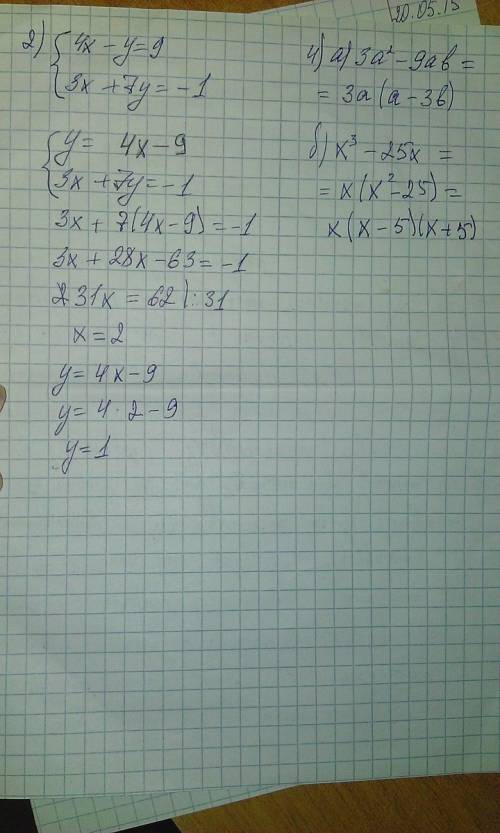 20.05.15
2) { 4x - y = 9
3x + 7y = -1
{ y = 4x - 9
3x + 7y = -1
3x + 7(4x - 9) = -1
3x + 28x - 63 = -1
31x = 62 |: 31
x = 2
y = 4x - 9
y = 4 · 2 - 9
y = 1
4) а) 3a² - 9ab =
= 3a(a - 3b)
б) x³ - 25x =
= x(x² - 25) =
x(x - 5)(x + 5)